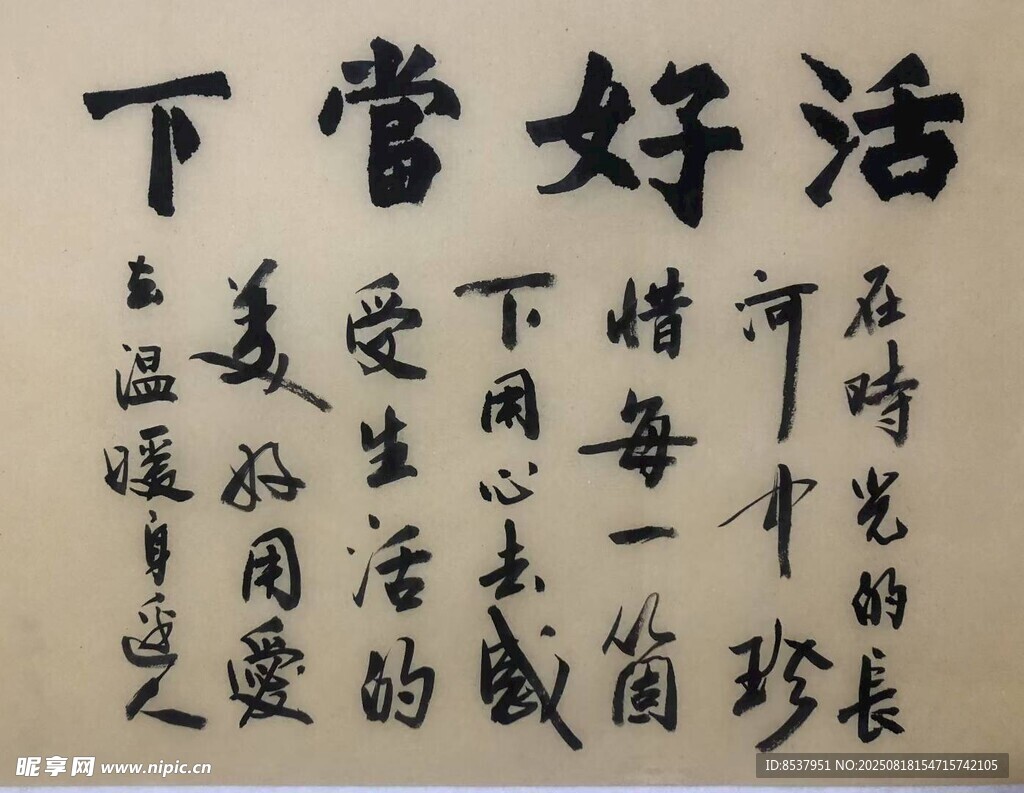 活好當下
在時光的長
河中珍
惜每一箇
下用心去感
受生活的
美好用愛
去温暖身邊人
昵享网 www.nipic.cn
ID:8537951 NO:20250818154715742105